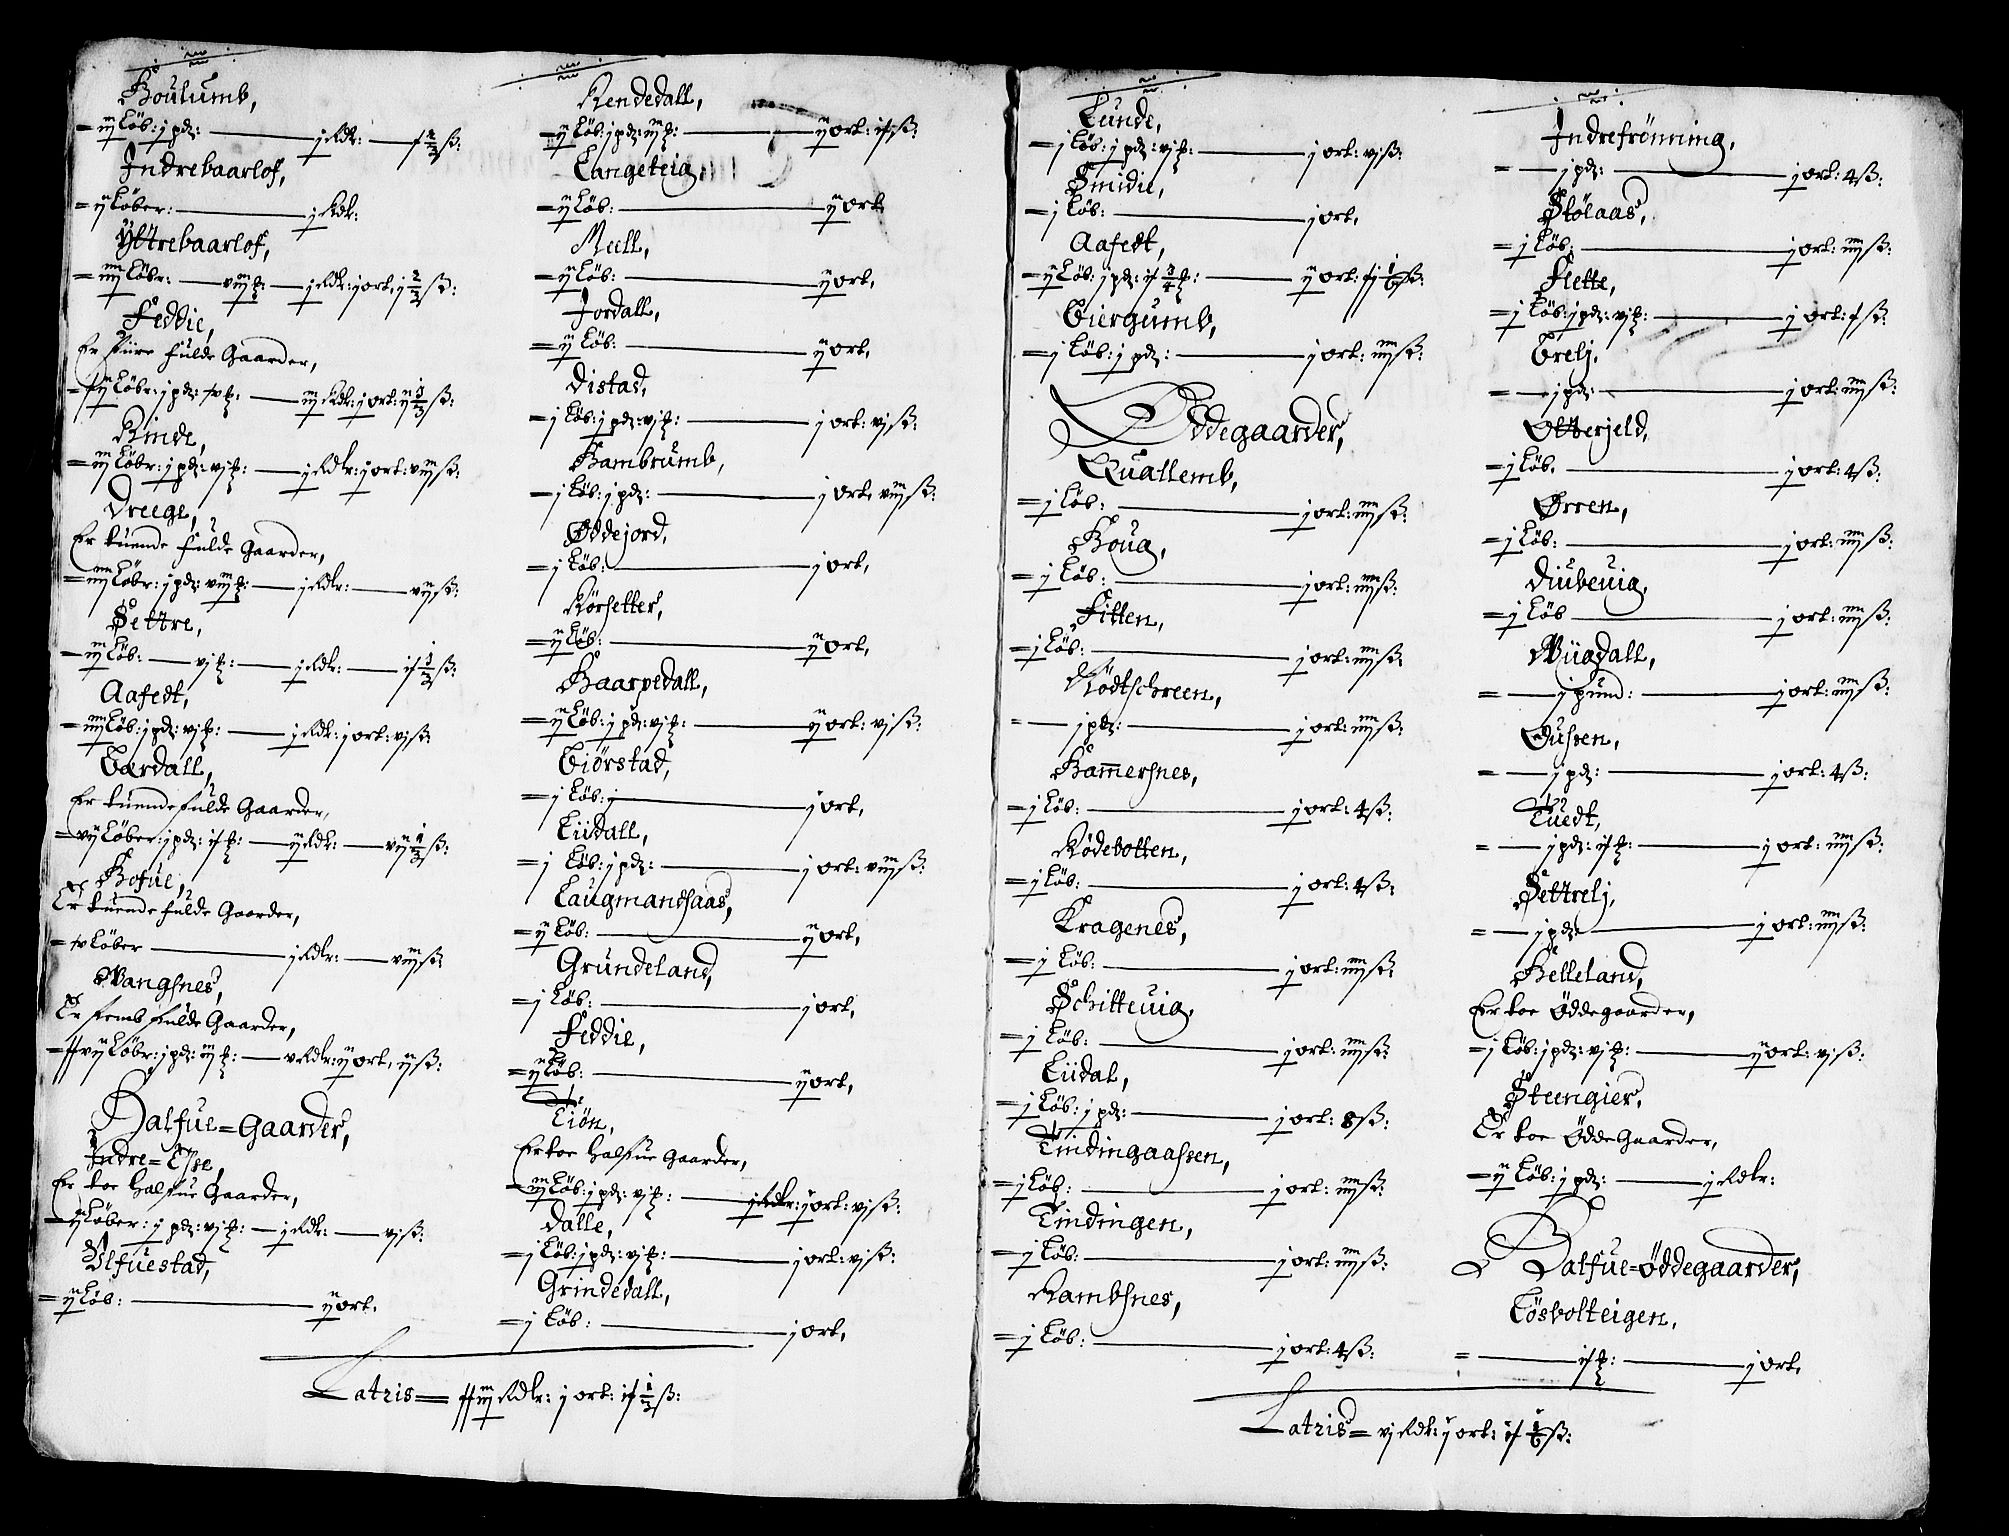 Houlumb,
= iij Løb: j pd: — j Rdr: — f 2/3 ß:
Indrebaarlof,
= ij Løber: — j Rdr:
Yttrebaarlof,
= iiij Løbr: — viij — j Rdr: j ort, j 2/3 ß:
Feddie,
Er fiire fulde Gaarder,
Løbr: j pd: — iij Rdr: j ort: ij 1/3 ß:
Rinde,
= iij Løbr: j pd: vj — j Rdr: j ort: viij ß:
Dreege,
Er tuende fulde Gaarder,
= iiij Løbr: j pd: viij — j Rdr: — vij ß:
Settre,
= iij Løb: — vj — j Rdr: — if 1/3 ß:
Aafedt,
= iiij Løb: j pd: vj — j Rdr: j ort: vj ß:
Værdall,
Er tuende fulde Gaarder,
= vij Løber: j pd: if — ij Rdr: — vij 1/3 ß:
Hofue,
Er tuende fulde Gaarder,
Løber — j Rdr: — viij ß:
Wangsnes,
Er femb fulde Gaarder,
Løbr: j pd: iij — v Rdr: ij ort, ij ß:
Halfue=Gaarder,
Indre=
Er toe halfue Gaarder,
= ij Løber: j pd: vj — j Rdr: — vj ß:
Ulfuestad,
= ij Løb: — ij ort,
Rendedall,
= ij Løb: j pd: iij — ij ort: if ß:
Langeteig,
= ij Løb: — ij ort
Mell,
= ij Løb: — ij ort,
Jordall,
= ij Løb: — ij ort,
Distad,
= j Løb: j pd: vj — j ort: vj ß:
Hambrumb,
= j Løb: j pd: — j ort, viij ß:
Øddejord,
= j Løb: — j ort,
Kørsetter,
= ij Løb: — ij ort,
Haarpedall,
= ij Løb: j pd: vj — ij ort: vj ß:
Giørstad,
= j Løb: j — j ort,
Liidall,
= j Løb: j pd: — j ort: viij ß:
Laugmandsaas,
= ij Løb: — ij ort,
Grundeland,
= j Løb: — j ort,
Feddie,
= ij Løb: — ij ort,
Tiøn,
Er toe halfue Gaarder,
= iij Løb: j pd: vj — j Rdr: j ort: vj ß:
Dalle,
= j Løb: j pd: vj — j ort: vj ß:
Grindedall,
= j Løb: — j ort,
Latris = iij Rdr: j ort: if 1/3 ß:
Lunde,
= j Løb: j pd: vj — j ort: vj ß:
Smidie,
= j Løb: — j ort,
Aafedt,
= ij Løb: j pd: if 3/4 — ij ort: 1/6 ß:
Biergumb,
= j Løb: j pd: — j ort: iiij ß:
Øddegaarder,
Quallemb,
= j Løb: — j ort: iiij ß:
Houg,
= j Løb: — j ort: iiij ß:
Fitten,
= j Løb: — j ort: iiij ß:
Rødtschreen,
= — j pd: — j ort: iiij ß:
Hammersnes,
= j Løb: — j ort: 4 ß:
Rødebotten,
= j Løb: — j ort: 4 ß:
Kragenes,
= j Løb: — j ort: iiij ß:
Schitteuig,
= j Løb: — j ort: iiij ß:
Liidal,
= j Løb: j pd: — j ort: 8 ß:
Tindingaassen,
= j Løb: — j ort: iiij ß:
Tindingen,
= j Løb: — j ort: iiij ß:
Rambsnes,
= j Løb: — j ort: 4 ß:
Indrefrønning,
= — j pd: — j ort: 4 ß:
Stølaas,
= j Løb: — j ort: iiij ß:
Flette,
= j Løb: j pd: vj — j ort: f ß:
Grelj,
= — j pd: — j ort: iiij ß:
Otterjeld,
= j Løb. — j ort: 4 ß:
Ørren,
= j Løb: — j ort: iiij ß:
Diubeuig,
= j Løb — j ort: iiij ß:
Wiigdall,
= — j pund: — j ort: iiij ß:
Øussen,
= — j pd: — j ort: 4 ß:
Tuedt,
= — j pd: if — j ort: iiij ß:
Settrelj,
= — j pd: — j ort: iiij ß:
Helleland,
Er toe Øddegaarder,
= j Løb: j pd: vj — ij ort: vj ß:
Steengier,
Er toe Øddegaarder,
= ij Løb: j pd: — j Rdr:
Halfue=Øddegaarder,
Løsvolteigen,
= — if — j ort,
Latris = vj Rdr: j ort: if 1/6 ß: